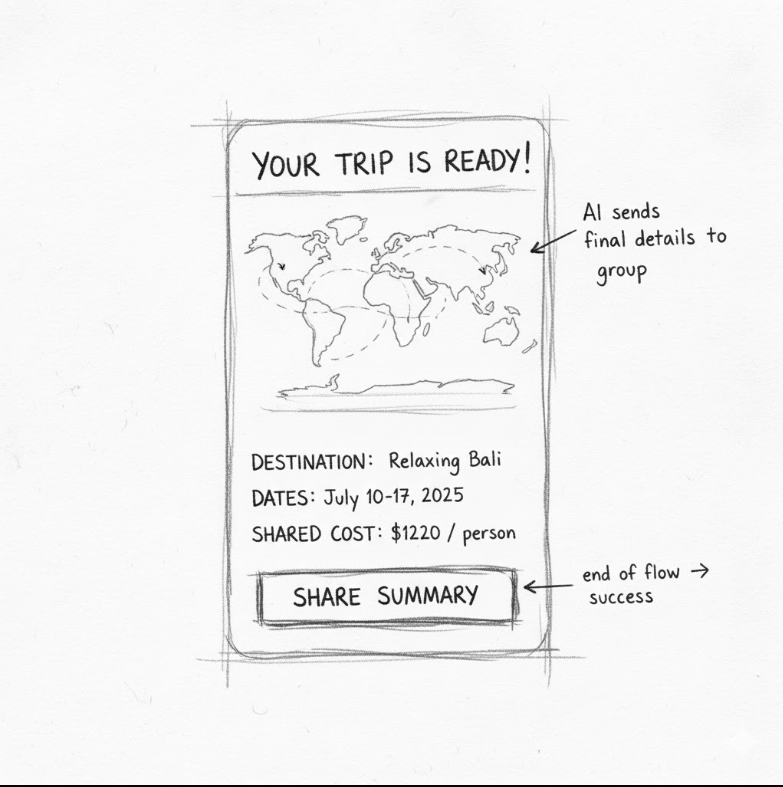 YOUR TRIP IS READY!
AI sends
final details to
group
DESTINATION: Relaxing Bali
DATES: July 10-17, 2025
SHARED COST: $1220 / person
SHARE SUMMARY
end of flow →
success